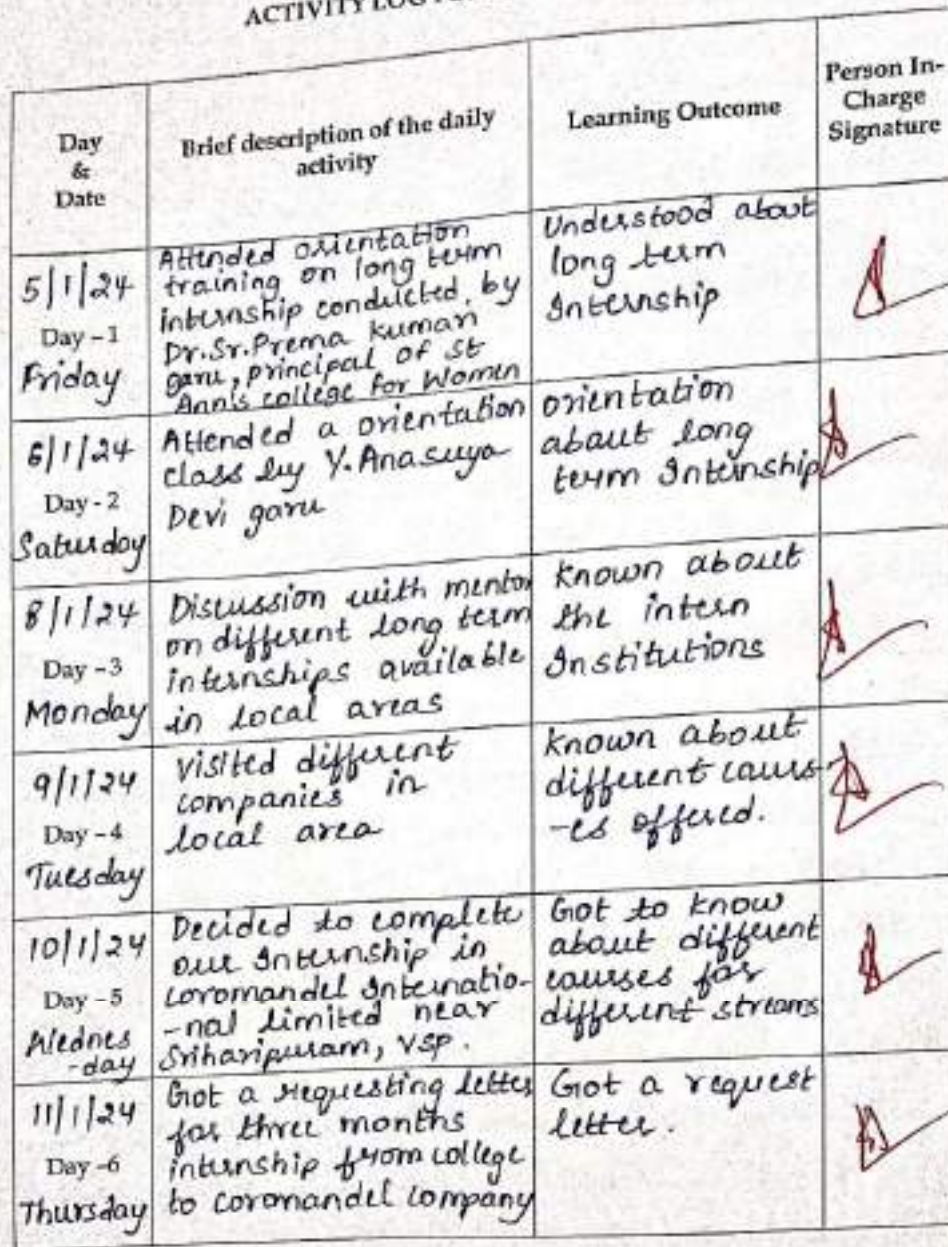 ACTIVITY LOG
Day
&
Date
Brief description of the daily
activity
Learning Outcome
Person In-
Charge
Signature
5/1/24
Day - 1
Friday
Attended orientation
training on long term
internship conducted by
Dr.Sr.Prema Kumari
garu, principal of st
Ann's college for Women
Understood about
long term
Internship
6/1/24
Day - 2
Saturday
Attended a orientation
class by Y.Anasuya
Devi garu
orientation
about long
term Internship
8/1/24
Day - 3
Monday
Discussion with mentor
on different long term
internships available
in local areas
Known about
the intern
Institutions
9/1/24
Day - 4
Tuesday
visited different
companies in
local area
Known about
different cours-
-es offered.
10/1/24
Day - 5
Wednes
-day
Decided to complete
our Internship in
coromandel Internatio-
-nal limited near
Sriharipuram, vsp.
Got to know
about different
courses for
different streams
11/1/24
Day - 6
Thursday
Got a requesting letter
for three months
internship from college
to coromandel company
Got a request
letter.